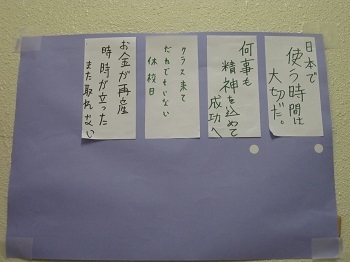 日本で
使う時間は
大切だ。
何事も
精神を込めて
成功へ
クラス来て
だれでもいない
休校日
お金が再産
時時が立った
また取れない